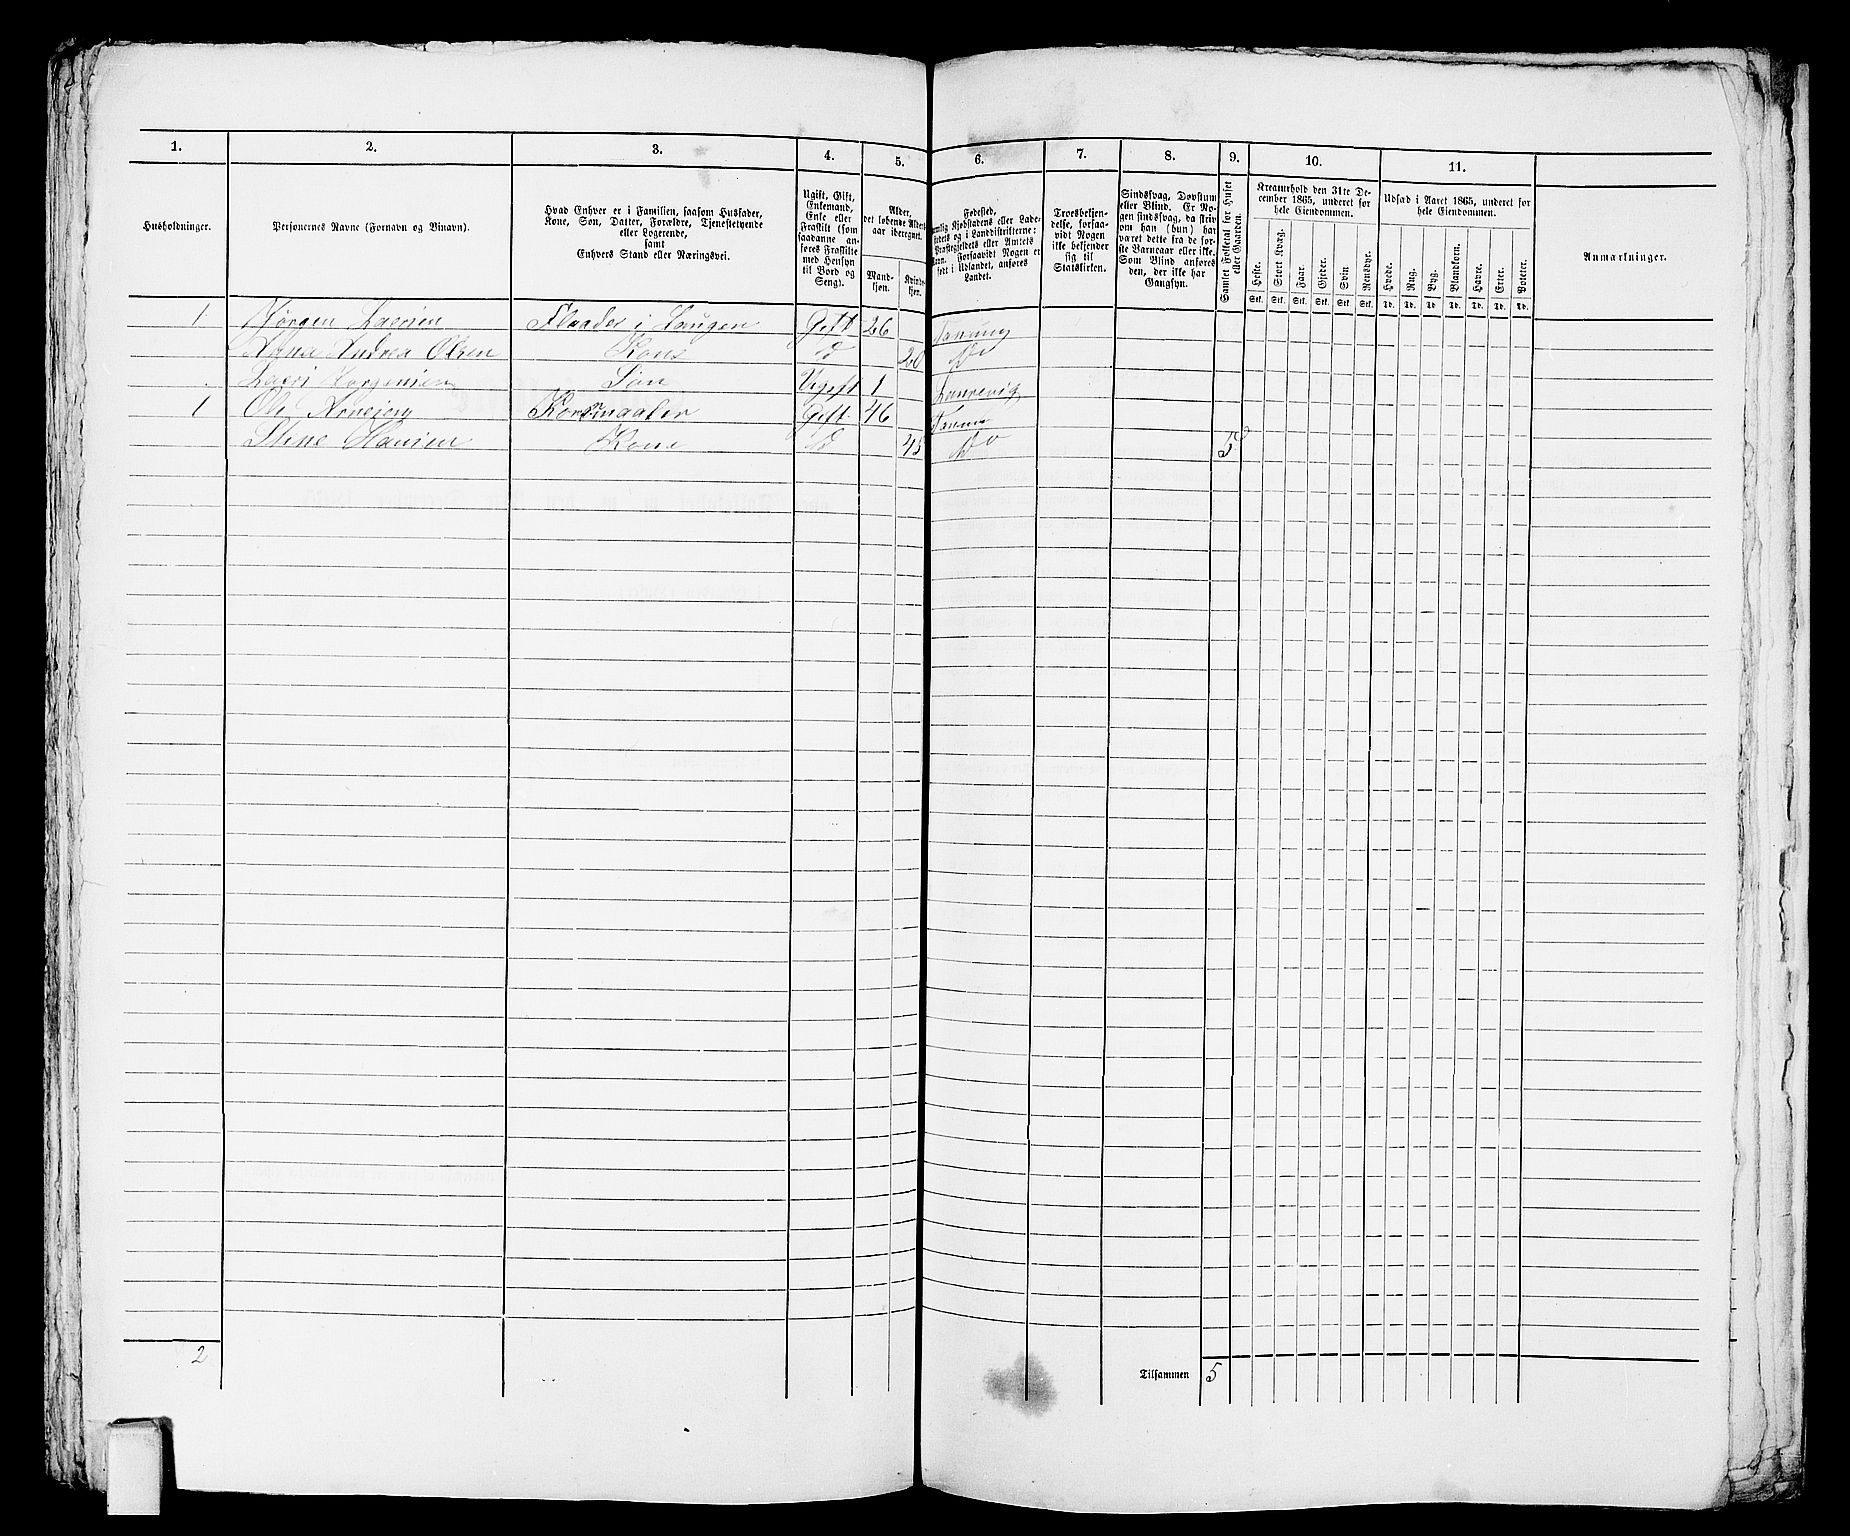 1. 2. 3. 4. 5. 6. 7. 8. 9. 10. 11.
Husholdninger.
Personernes Navne (Fornavn og Binavn).
Hvad Enhver er i Familien, saasom Husfader,
Kone, Søn, Datter, Forældre, Tjenestetyende
eller Logerende,
samt
Enhvers Stand eller Næringsvei.
Ugift, Gift,
Enkemand,
Enke eller
Fraskilt (som
saadanne an-
føres Fraskilte
med Hensyn
til Bord og
Seng).
Alder,
det løbende Alders-
aar iberegnet.
Mand-
kjøn.
Kvinde-
kjøn.
Fødested,
nemlig Kjøbstadens eller Lade-
stedets og i Landdistrikterne:
Præstegjeldets eller Amtets
Navn. Forsaavidt Nogen er
født i Udlandet, anføres
Landet.
Troesbekjen-
delse, forsaa-
vidt Nogen
ikke bekjender
sig til
Statskirken.
Sindssvag, Døvstum
eller Blind. Er No-
gen sindssvag, da skriv
om han (hun) har
været dette fra de før-
ste Barneaar eller ikke.
Som Blind anføres
den, der ikke har
Gangsyn.
Samlet Folketal for Huset
eller Gaarden.
Kreaturhold den 31te De-
cember 1865, underet for
hele Eiendommen.
Heste. Stort Kvæg. Faar. Gjeder. Svin. Rensdyr.
Stk. Stk. Stk. Stk. Stk. Stk.
Udsæd i Aaret 1865, underet for
hele Eiendommen.
Hvede. Rug. Byg. Blandkorn. Havre. Erter. Poteter.
Td. Td. Td. Td. Td. Td. Td.
Anmærkninger.
1 Jørgen Larsen Flaader i Haugen Gift 26 Tanum
Anna Andrea Olsen Kone D 20 Do
Lars Jørgensen Søn Ugift 1 Laurevig
1 Ole Gift 46 Tanum
Stine Hansen Kone D 43 Do 5
2 Tilsammen 5